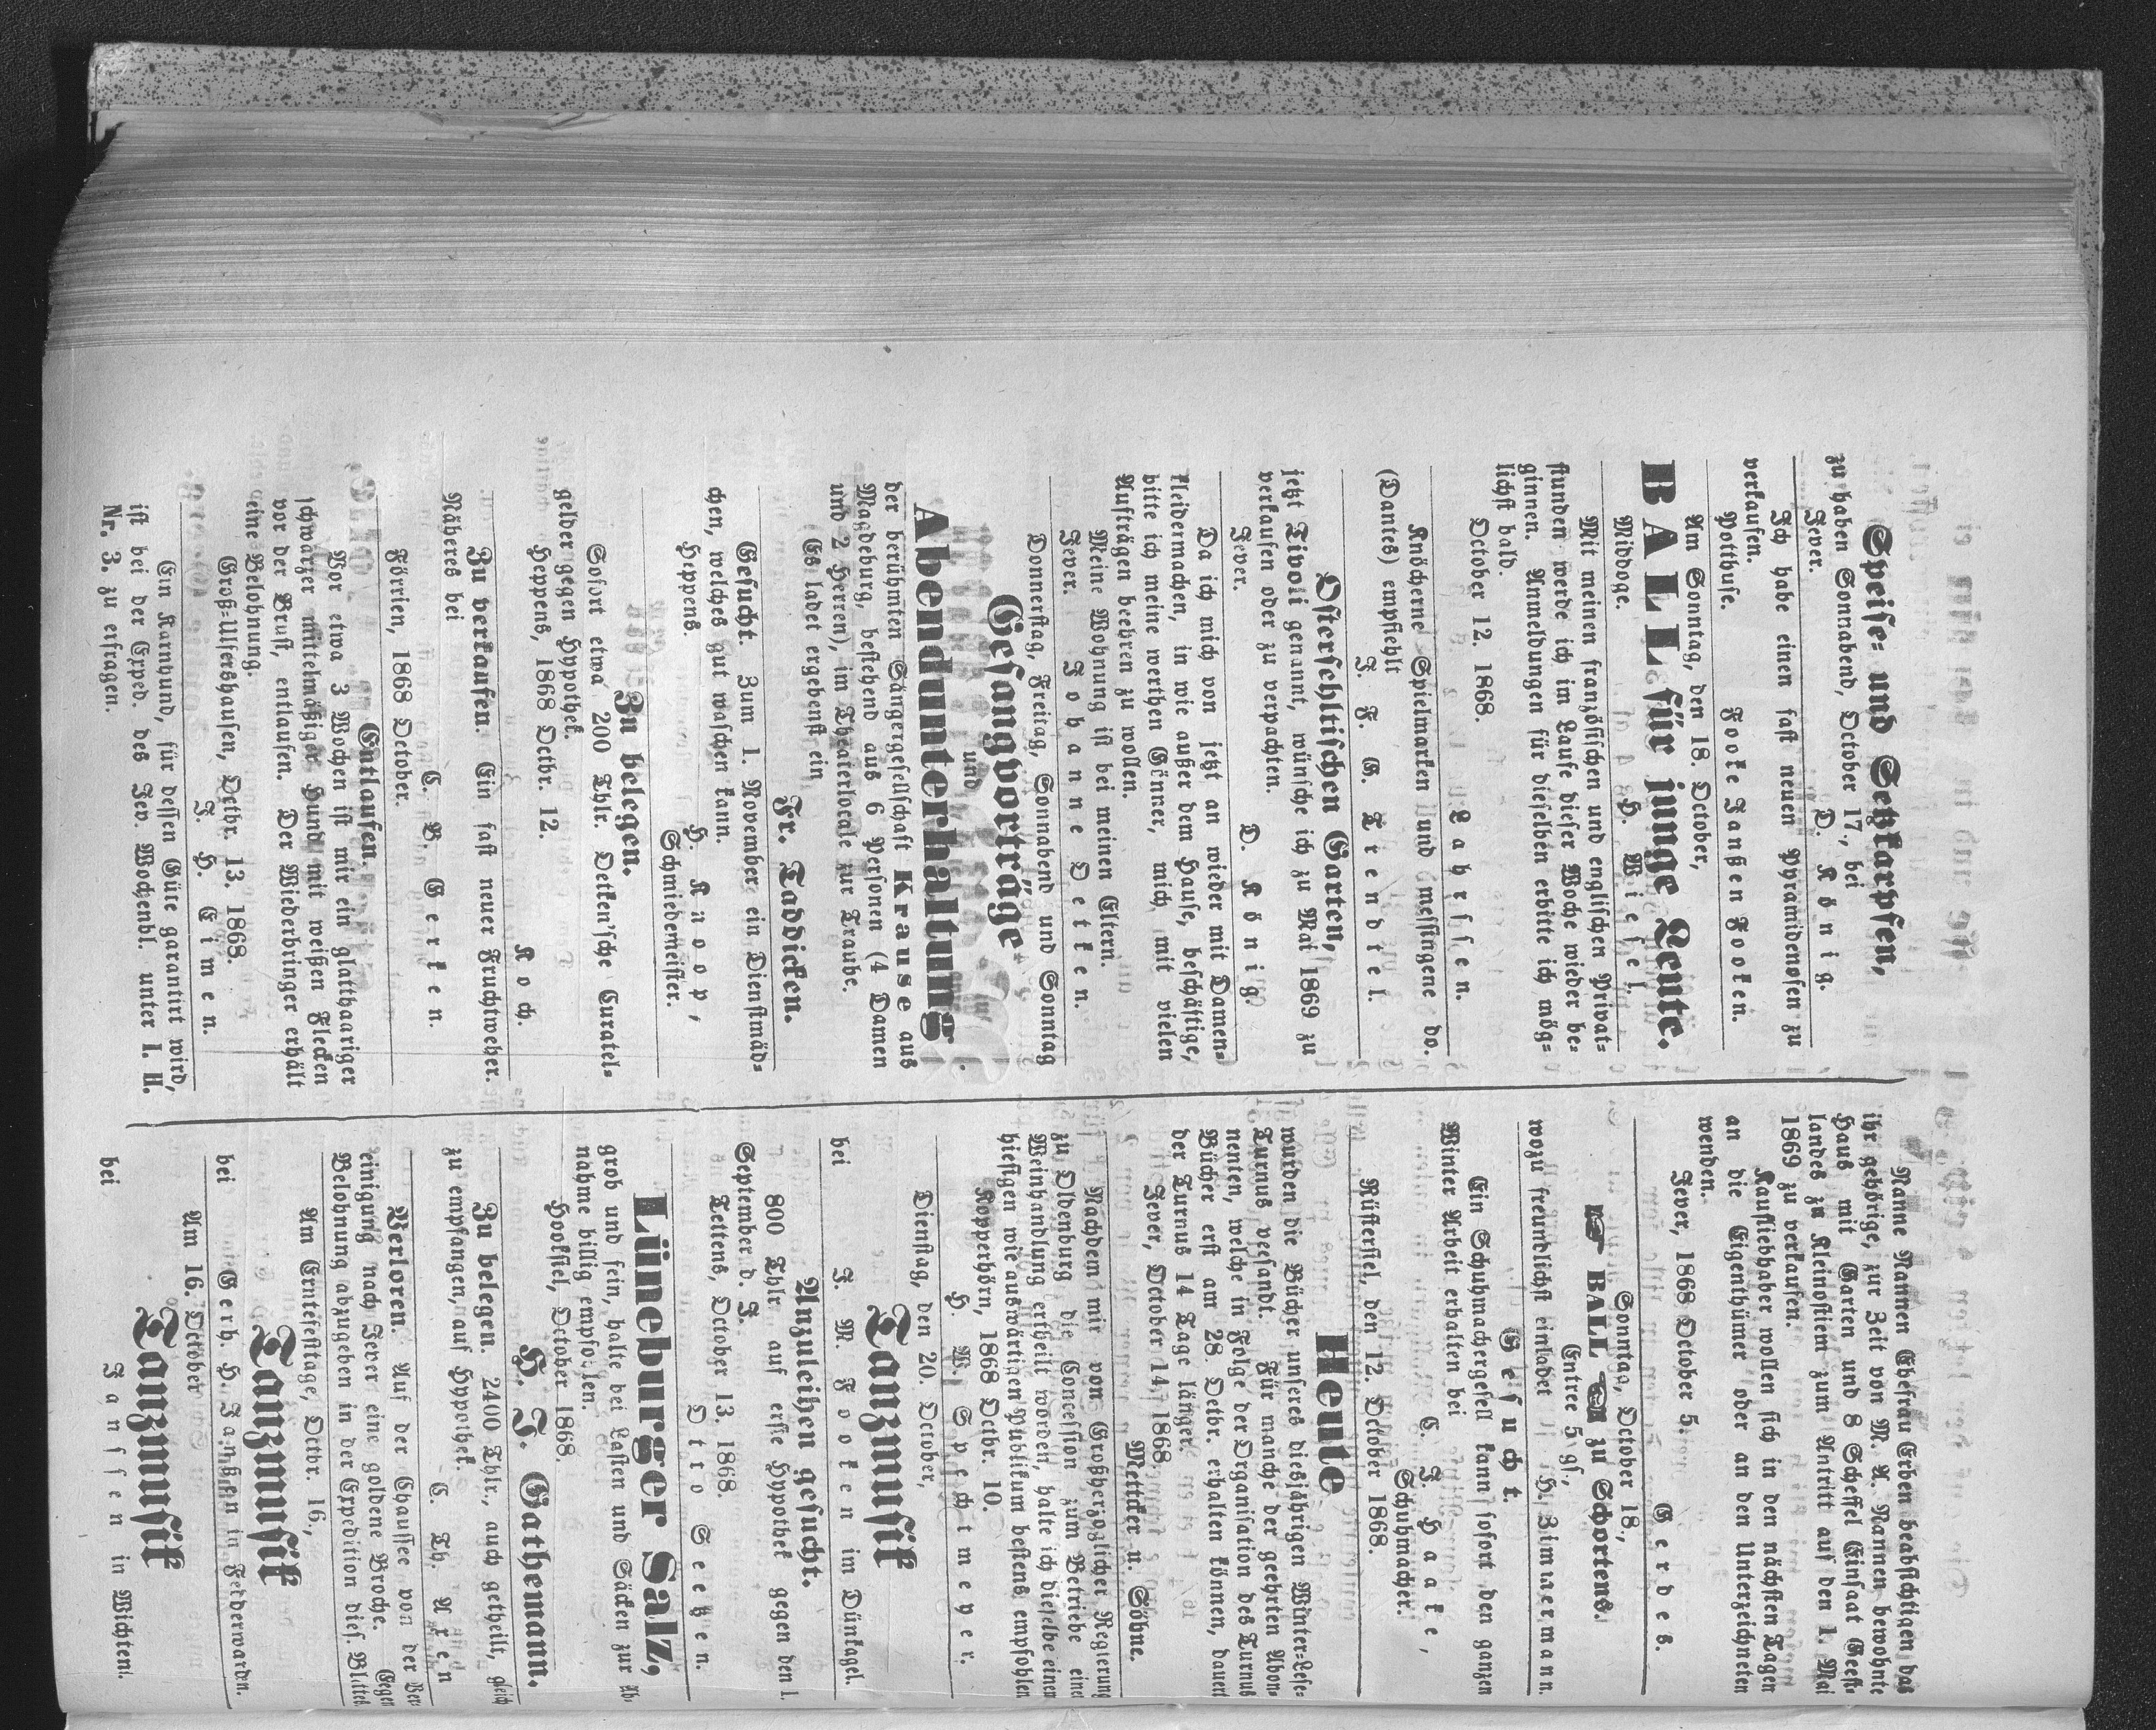 Speise- und Setzkarpfen,
zu haben Sonnabend, October 17., bei
Jever. D. König.
Ich habe einen fast neuen Pyramidenofen zu
verkaufen.
Pottbuse. Fooke Janßen Fooken.
Am Sonntag, den 18. October,
BALL für junge Leute.
Middoge. H. Wiesel.
Mit meinen französischen und englischen Privat-
stunden werde ich im Laufe dieser Woche wieder be-
ginnen. Anmeldungen für dieselben erbitte ich mög-
lichst bald.
October 12. 1868. Lahrssen.
Knöcherne Spielmarken und messingene do.
(Dantes) empfiehlt
J. F. G. Trendtel.
Osterschltischen Garten,
jetzt Tivoli genannt, wünsche ich zu Mai 1869 zu
verkaufen oder zu verpachten.
Jever. D. König
Da ich mich von jetzt an wieder mit Damen-
kleidermachen, in wie außer dem Hause, beschäftige,
bitte ich meine werthen Gönner, mich mit vielen
Aufträgen beehren zu wollen.
Meine Wohnung ist bei meinen Eltern.
Jever. Johanne Detken.
Donnerstag, Freitag, Sonnabend und Sonntag
Gesangvorträge
und
Abendunterhaltung
der berühmten Sängergesellschaft Krause aus
Magdeburg, bestehend aus 6 Personen (4 Damen
und 2 Herren), im Theaterlocale zur Traube.
Es ladet ergebenst ein
Fr. Taddicken.
Gesucht. Zum 1. November ein Dienstmäd-
chen, welches gut waschen kann.
Heppens. H. Knoop,
Schmiedemeister.
Zu belegen.
Sofort etwa 200 Thlr. Detken'sche Curatel-
gelder gegen Hypothek.
Heppens, 1868 Octbr. 12.
Koch.
Zu verkaufen. Ein fast neuer Fruchtweher.
Näheres bei
C. B. Gerken.
Förrien, 1868 October.
Entlaufen.
Vor etwa 3 Wochen ist mir ein glatthaariger
schwarzer mittelmäßiger Hund mit weißen Flecken
vor der Brust, entlaufen. Der Wiederbringer erhält
eine Belohnung.
Groß-Ulfershausen, Octbr. 13. 1868.
J. H. Eimen.
Ein Karnhund, für dessen Güte garantirt wird,
ist bei der Exped. des Jev. Wochenbl. unter I. H.
Nr. 3. zu erfragen.
Nanne Nannen Ehefrau Erben beabsichtigen das
ihr gehörige, zur Zeit von M. A. Nannen bewohnte
Haus mit Garten und 8 Scheffel Einsaat Geest-
landes zu Kleinostiem zum Antritt auf den 1. Mai
1869 zu verkaufen.
Kaufliebhaber wollen sich in den nächsten Tagen
an die Eigenthümer oder an den Unterzeichneten
wenden.
Jever, 1868 October 5. Gerdes.
Sonntag, October 18.,
BALL zu Schortens.
Entree 5 gf.,
wozu freundlichst einladet H. Zimmermann.
Gesucht.
Ein Schuhmachergesell kann sofort den ganzen
Winter Arbeit erhalten bei
C. J. Haake,
Schuhmacher.
Rüstersiel, den 12. October 1868.
Heute
wurden die Bücher unseres diesjährigen Winter-Lese-
Turnus versandt. Für manche der geehrten Abon-
nenten, welche in Folge der Organisation des Turnus
Bücher erst am 28. Octbr. erhalten können, dauert
der Turnus 14 Tage länger.
Jever, October 14. 1868
Mettcker u. Söhne.
Nachdem mir von Großherzoglicher Regierung
zu Oldenburg die Concession zum Betriebe einer
Weinhandlung ertheilt worden, halte ich dieselbe einem
hiesigen wie auswärtigen Publikum bestens empfohlen
Kopperhörn, 1868 Octbr. 10.
H. W. Spechtmeyer.
Dienstag, den 20. October,
Tanzmusik
bei J. M. Fooken im Dünkagel.
Anzuleihen gesucht.
800 Thlr. auf erste Hypothek gegen den 1.
September d. J.
Tettens, October 13. 1868.
Otto Seetzen.
Lüneburger Salz,
grob und fein, halte bei Lasten und Säcken zur Ab-
nahme billig empfohlen.
Hooksiel, October 1868.
H. J. Gathemann.
Zu belegen. 2400 Thlr., auch getheilt, gleich
zu empfangen, auf Hypothek.
C. Th. Arken
Verloren. Auf der Chaussee von der Ver
einigung nach Jever eine goldene Broche. Gegen
Belohnung abzugeben in der Expedition dies. Blattes
Am Erntefesttage, Octbr. 16.,
Tanzmusik
bei Gerh. H. Janßen in Federwarden.
Am 16. October
Tanzmusik
bei Janssen in Wichtens.